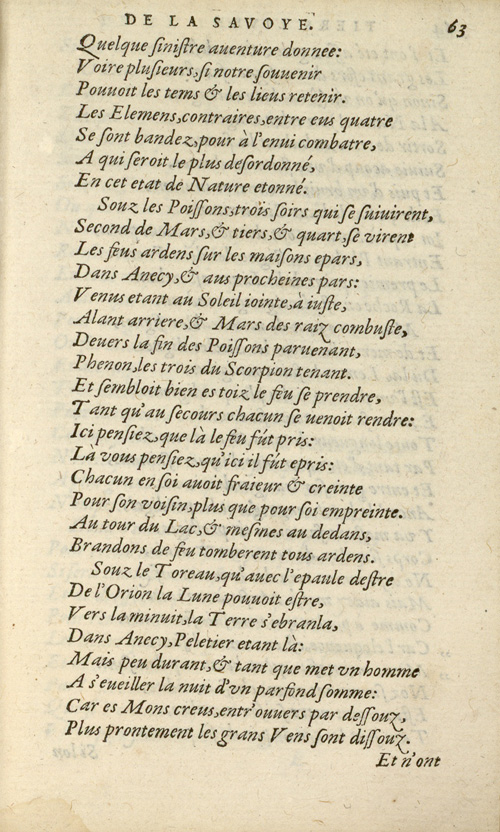 DE LA SAVOYE.
63
Quelque ſiniſtre auenture donnee:
Voire pluſieurs, ſi notre ſouuenir
Pouuoit les tems & les lieus retenir.
Les Elemens, contraires, entre eus quatre
Se ſont bandez, pour à l'enui combatre,
A qui ſeroit le plus deſordonné,
En cet etat de Nature etonné.
Souz les Poiſſons, trois ſoirs qui ſe ſuiuirent,
Second de Mars, & tiers, & quart, ſe virent
Les feus ardens ſur les maiſons epars,
Dans Anecy, & aus procheines pars:
Venus etant au Soleil iointe, à iuſte,
Alant arriere, & Mars des raiz combuſte,
Deuers la fin des Poiſſons paruenant,
Phenon, les trois du Scorpion tenant.
Et ſembloit bien es toiz le feu ſe prendre,
Tant qu'au ſecours chacun ſe uenoit rendre:
Ici penſiez, que là le feu fút pris:
Là vous penſiez, qu'ici il fút epris:
Chacun en ſoi auoit fraieur & creinte
Pour ſon voiſin, plus que pour ſoi empreinte.
Au tour du Lac, & meſmes au dedans,
Brandons de feu tomberent tous ardens.
Souz le Toreau, qu'auec l'epaule deſtre
De l'Orion la Lune pouuoit eſtre,
Vers la minuit, la Terre s'ebranla,
Dans Anecy, Peletier etant là:
Mais peu durant, & tant que met vn homme
A s'eueiller la nuit d'vn parfond ſomme:
Car es Mons creus, entr'ouuers par deſſouz,
Plus prontement les grans Vens ſont diſſouz.
Et n'ont